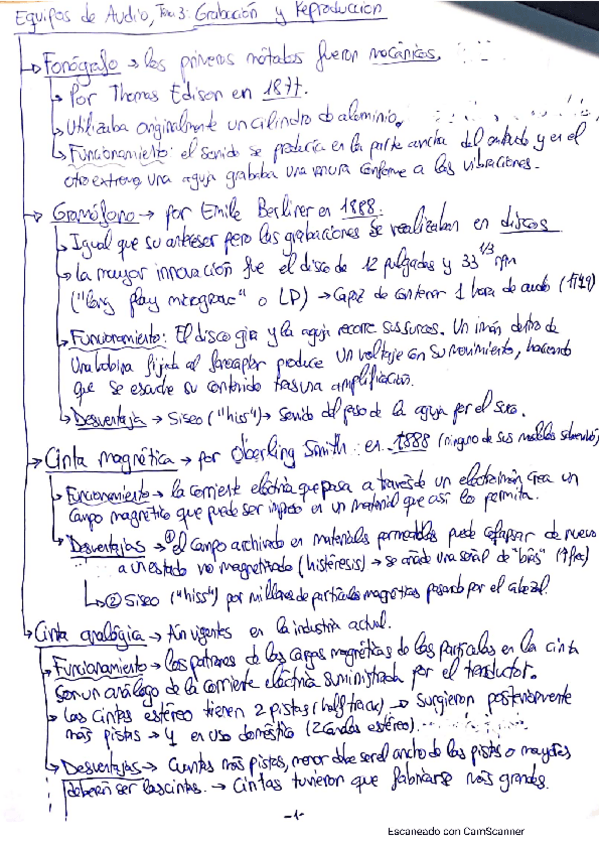 Equipos de Audio, Tema 3: Grabación y Reproducción
↳ Fonógrafo → los primeros métodos fueron mecánicos.
↳ Por Thomas Edison en 1877.
↳ Utilizaba originalmente un cilindro de aluminio.
↳ Funcionamiento: el sonido se producía en la parte ancha del y en el
otro extremo, una aguja grababa una conforme a las vibraciones.
↳ Gramófono → por Emile Berliner en 1888.
↳ Igual que su pero las grabaciones se realizaban en discos
↳ la mayor innovación fue el disco de 12 pulgadas y 33 1/3 rpm
("long play microgroove" o LP) → Capaz de contener 1 hora de audio
↳ Funcionamiento: El disco gira y la aguja recorre sus surcos. Un imán dentro de
una bobina fijada al produce un voltaje con su movimiento, haciendo
que se escuche su contenido tras una amplificación.
↳ Desventaja → Siseo ("hiss") → Sonido del paso de la aguja por el surco.
→ Cinta magnética → por Oberling Smith en 1888 (ninguno de sus modelos
↳ Funcionamiento → la corriente eléctrica que pasa a través de un electroimán crea un
campo magnético que puede ser impreso en un material que así lo permita.
↳ Desventajas → ① el campo archivado en materiales permeables puede colapsar de nuevo
a un estado no magnetizado (histéresis) → se añade una señal de "bias"
↳ ② Siseo ("hiss") por millares de partículas magnéticas pasando por el cabezal.
↳ Cinta analógica → Aún vigentes en la industria actual.
↳ Funcionamiento → los patrones de las cargas magnéticas de las partículas en la cinta
son un análogo de la corriente eléctrica suministrada por el transductor.
↳ Las cintas estéreo tienen 2 pistas (half track) → surgieron posteriormente
más pistas → 4 en uso doméstico (2 estéreo).
↳ Desventajas → Cuantas más pistas, menor debe ser el ancho de las pistas o mayores
deberán ser las cintas. → Cintas tuvieron que fabricarse más grandes.
-1-
Escaneado con CamScanner